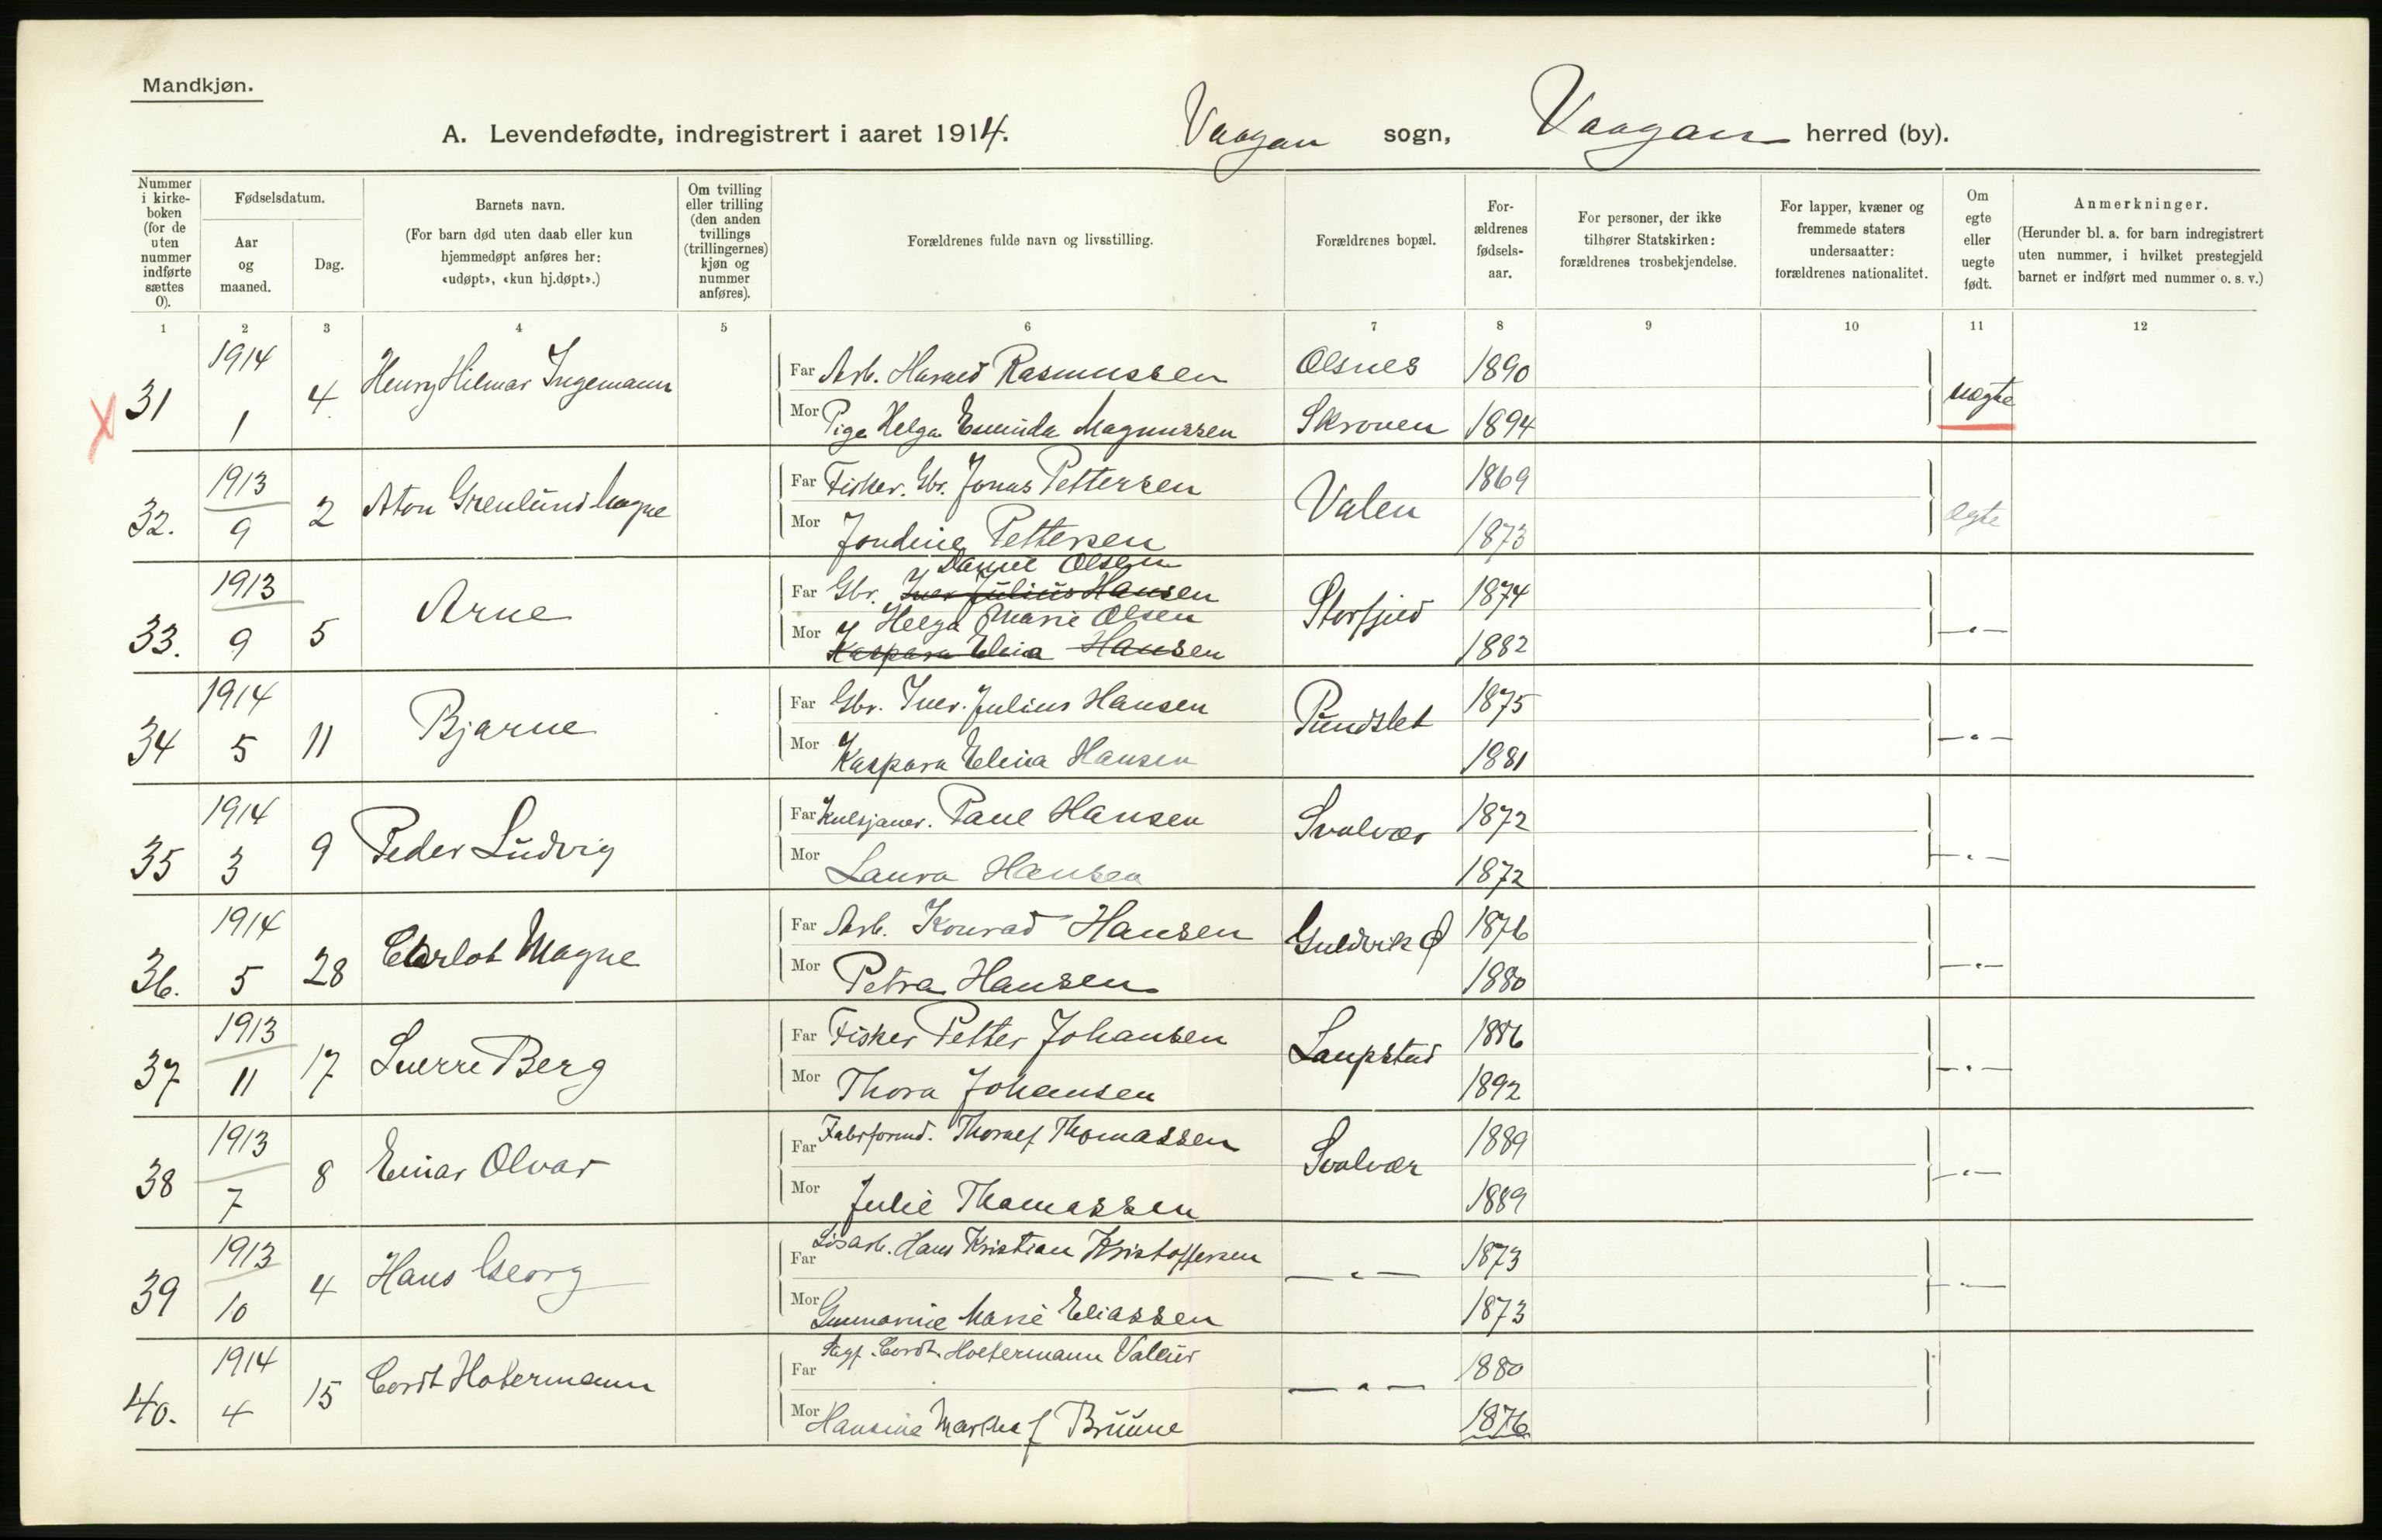 Mandkjøn.
A. Levendefødte, indregistrert i aaret 1914. Vaagan sogn, Vaagan herred (by).
Nummer i kirke-boken (for de uten nummer indførte sættes 0).
Fødselsdatum.
Aar og maaned.
Dag.
Barnets navn.
(For barn død uten daab eller kun hjemmedøpt anføres her: «udøpt», «kun hj.døpt».)
Om tvilling eller trilling (den anden tvillings (trillingernes) kjøn og nummer anføres).
Forældrenes fulde navn og livsstilling.
Forældrenes bopæl.
For-ældrenes fødsels-aar.
For personer, der ikke tilhører Statskirken: forældrenes trosbekjendelse.
For lapper, kvæner og fremmede staters undersaatter: forældrenes nationalitet.
Om egte eller uegte født.
Anmerkninger.
(Herunder bl. a. for barn indregistrert uten nummer, i hvilket prestegjeld barnet er indført med nummer o. s. v.)
1 2 3 4 5 6 7 8 9 10 11 12
X 31 1914 1 4 Henry Hilmar Ingemann
Far Arb. Harald Rasmussen Olsnes 1890 uægte
Mor Pige Helga Eminda Magnussen Skroven 1894
32. 1913 9 2 Aton Grenlund Magne
Far Fisker. Gbr. Jonas Pettersen Valen 1869 ægte
Mor Jondine Pettersen 1873
33. 1913 9 5 Arne
Daniel Olsen
Far Gbr. Iver Julius Hansen Storfjeld 1874 — " —
Helga Marie Olsen
Mor Kaspara Elina Hansen 1882
34 1914 5 11 Bjarne
Far Gbr. Iver Julius Hansen Pundslet 1875 — " —
Mor Kaspara Elina Hansen 1881
35 1914 3 9 Peder Ludvig
Far Paul Hansen Svolvær 1872 — " —
Mor Laura Hansen 1872
36. 1914 5 28 Charlot Magne
Far Arb. Konrad Hansen Guldvik Ø 1876 — " —
Mor Petra Hansen 1880
37 1913 11 17 Sverre Berg
Far Fisker Petter Johansen Laupstad 1886 — " —
Mor Thora Johansen 1892
38 1913 7 8 Einar Olvar
Far Thoralf Thomassen Svolvær 1889 — " —
Mor Julie Thomassen 1889
39 1913 10 4 Hans Georg
Far Løsarb. Hans Kristian Kristoffersen — " — 1873 — " —
Mor Gunnarine Marie Eliassen 1873
40. 1914 4 15 Cordt Hotermann
Far Cordt Holtermann Valeur — " — 1880
Mor Hansine Marthe f Bruune 1876